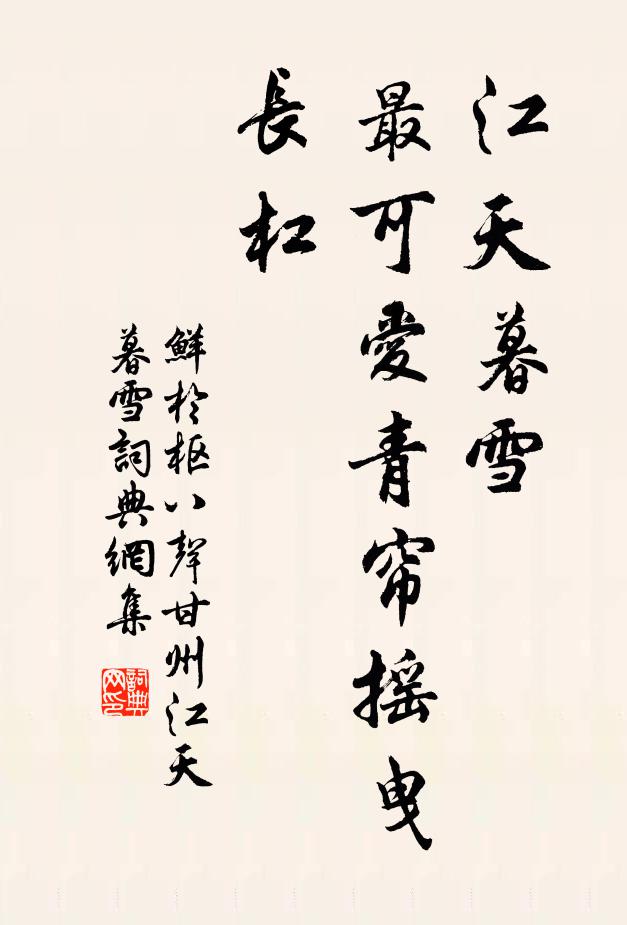 江天暮雪
最可愛青帘摇曳
長杠
鮮於枢八聲甘州江天
暮雪詞典網集
詞典
网印